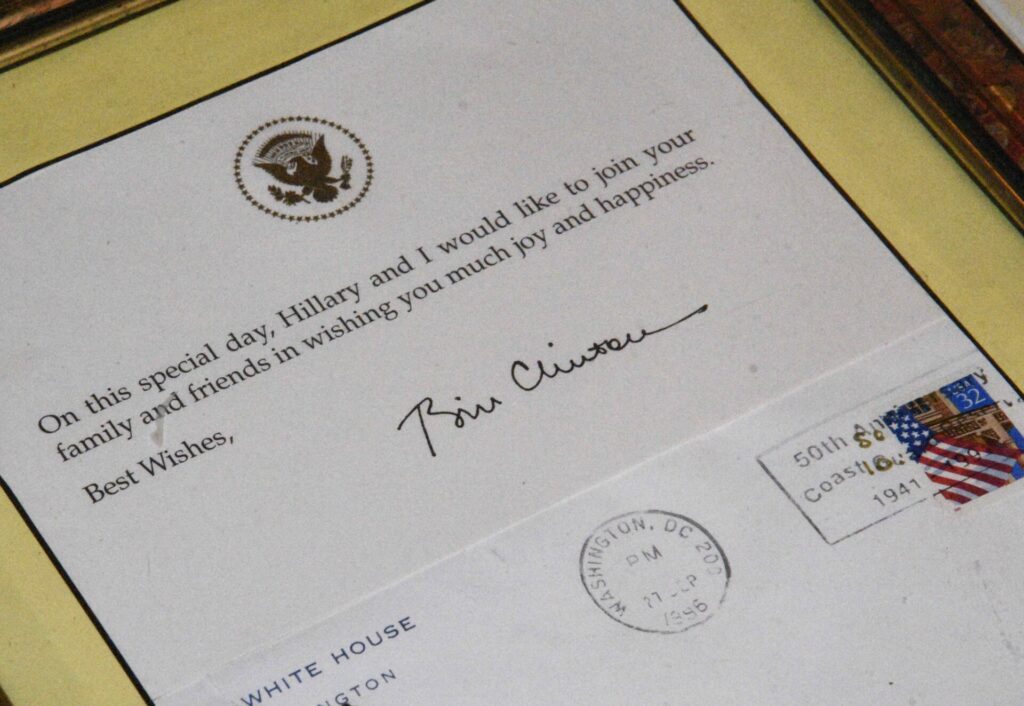 On this special day, Hillary and I would like to join your
family and friends in wishing you much joy and happiness.
Best Wishes,
Bill Clinton
USA
32
50th
Coast
1941
WASHINGTON, DC
PM
1996
WHITE HOUSE
NGTON